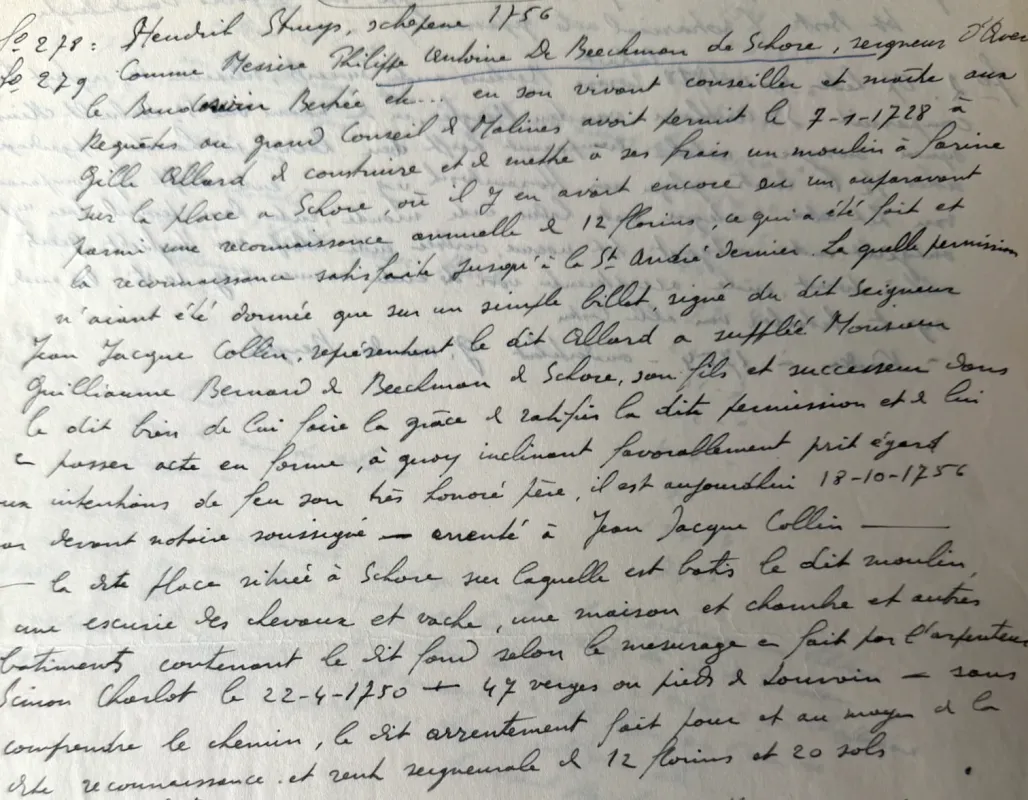 fo 278: Hendrik Struys, schepene 1756
fo 279 Comme Messire Philippe Antoine De Beeckman de Schore, seigneur d'Over
le Baudouin Bertrée etc... en son vivant conseiller et maître aux
Requêtes au grand Conseil de Malines avoit permit le 7-1-1728 à
Gille Allard de construire et de mettre à ses frais un moulin à farine
sur la place a Schore, où il y en avait encore eu un auparavant
parmi une reconnaissance annuelle de 12 florins, ce qui a été fait et
la reconnaissance satisfaite jusqu'à la St André dernier. La quelle permission
n'aiant été donnée que sur un simple billet, signé du dit Seigneur
Jean Jacque Collin, représentent le dit Allard a suppliée Monsieur
Guilliaume Bernard de Beeckman de Schore, son fils et successeur dans
le dit bien de lui faire la grâce de ratifier la dite permission et de lui
en passer acte en forme, à quoy inclinant favorablement, prit égard
aux intentions de feu son très honoré père, il est aujourd'hui 18-10-1756
par devant notaire soussigné — arrenté à Jean Jacque Collin —
— la dite place située à Schore sur laquelle est batis le dit moulin,
une escurie des chevaux et vache, une maison et chambre et autres
batiments contenant le dit fond selon le mesurage en fait par l'arpenteur
Simon Charlot le 22-4-1750 + 47 verges ou pieds de Louvain — sans
comprendre le chemin, le dit arrentement fait pour et au moyen de la
dite reconnaissance et rente seigneuriale de 12 florins et 20 sols